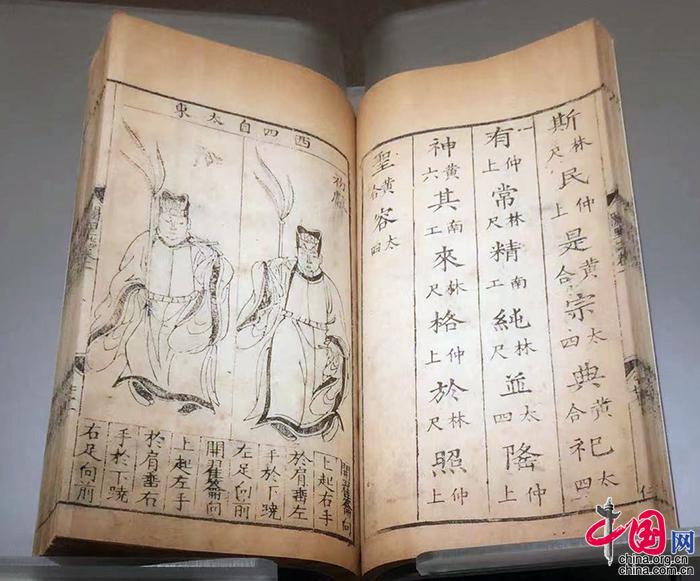 斯林尺民仲上是黄合宗太四典黄合祀太四
有仲上常林尺精南工純林尺並太四隆仲上
神黄六其南工來林尺格仲上於林尺照仲上
聖黄合容太四
西四自太東
初獻
開翟籥向
上起右手
於肩垂左
手於下蹺
左足向前
開翟籥向
上起左手
於肩垂右
手於下蹺
右足向前
中国网
china.org.cn
china.com.cn